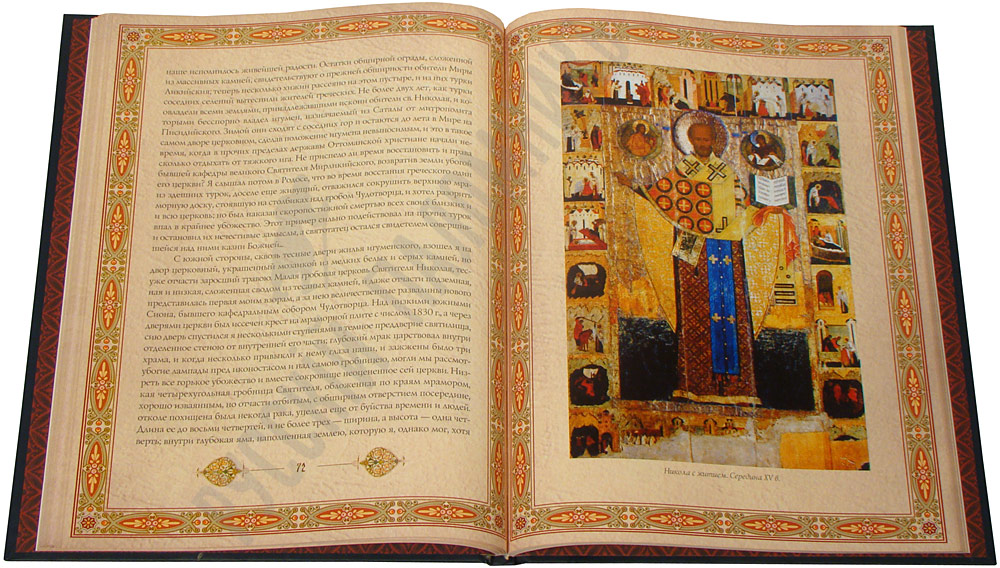 наше исполнилось живейшей радости. Остатки обширной ограды, сложенной
из массивных камней, свидетельствуют о прежней обширности обители Миры
Ликийския; теперь несколько хижин рассеяно на этом пустыре, и на них турки
соседних селений вытеснили жителей греческих. Не более двух лет, как турки
овладели всеми землями, принадлежавшими искони обители св. Николая, и ко-
торыми бесспорно владел игумен, назначаемый из Саталы от митрополита
Писидийского. Зимой они сходят с соседних гор и остаются до лета в Мире на
самом дворе церковном, сделав положение игумена невыносимым, и это в такое
время, когда в прочих пределах державы Оттоманской христиане начали не-
сколько отдыхать от тяжкого ига. Не приспело ли время восстановить и права
бывшей кафедры великого Святителя Мирликийского, возвратив земли убогой
его церкви? Я слышал потом в Родосе, что во время восстания греческого один
из здешних турок, доселе еще живущий, отважился сокрушить верхнюю мра-
морную доску, стоявшую на столбиках над гробом Чудотворца, и хотел разорить
и всю церковь; но был наказан скоропостижной смертью всех своих близких и
впал в крайнее убожество. Этот пример сильно подействовал на прочих турок
и остановил их нечестивые замыслы, а святотатец остался свидетелем совершив-
шейся над ними казни Божией.
С южной стороны, сквозь тесные двери жилья игуменского, взошел я на
двор церковный, украшенный мозаикой из мелких белых и серых камней, но
уже отчасти заросший травою. Малая гробовая церковь Святителя Николая, тес-
ная и низкая, сложенная сводом из тесаных камней, и даже отчасти подземная,
представилась первая моим взорам, а за нею величественные развалины нового
Сиона, бывшего кафедральным собором Чудотворца. Над низкими южными
дверями церкви был иссечен крест на мраморной плите с числом 1830 г., а через
сию дверь спустился я несколькими ступенями в темное преддверие святилища,
отделенное стеною от внутренней его части; глубокий мрак царствовал внутри
храма, и когда несколько привыкли к нему глаза наши, и зажжены было три
убогие лампады пред иконостасом и над самою гробницею, могли мы рассмот-
реть все горькое убожество и вместе сокровище неоцененное сей церкви. Низ-
кая четырехугольная гробница Святителя, обложенная по краям мрамором,
хорошо изваянным, но отчасти отбитым, с обширным отверстием посередине,
отколе похищена была некогда рака, уцелела еще от буйства времени и людей.
Длина ее до восьми четвертей, и не более трех — ширина, а высота — одна чет-
верть; внутри глубокая яма, наполненная землею, которую я, однако мог, хотя
72
Никола с житием. Середина XV в.